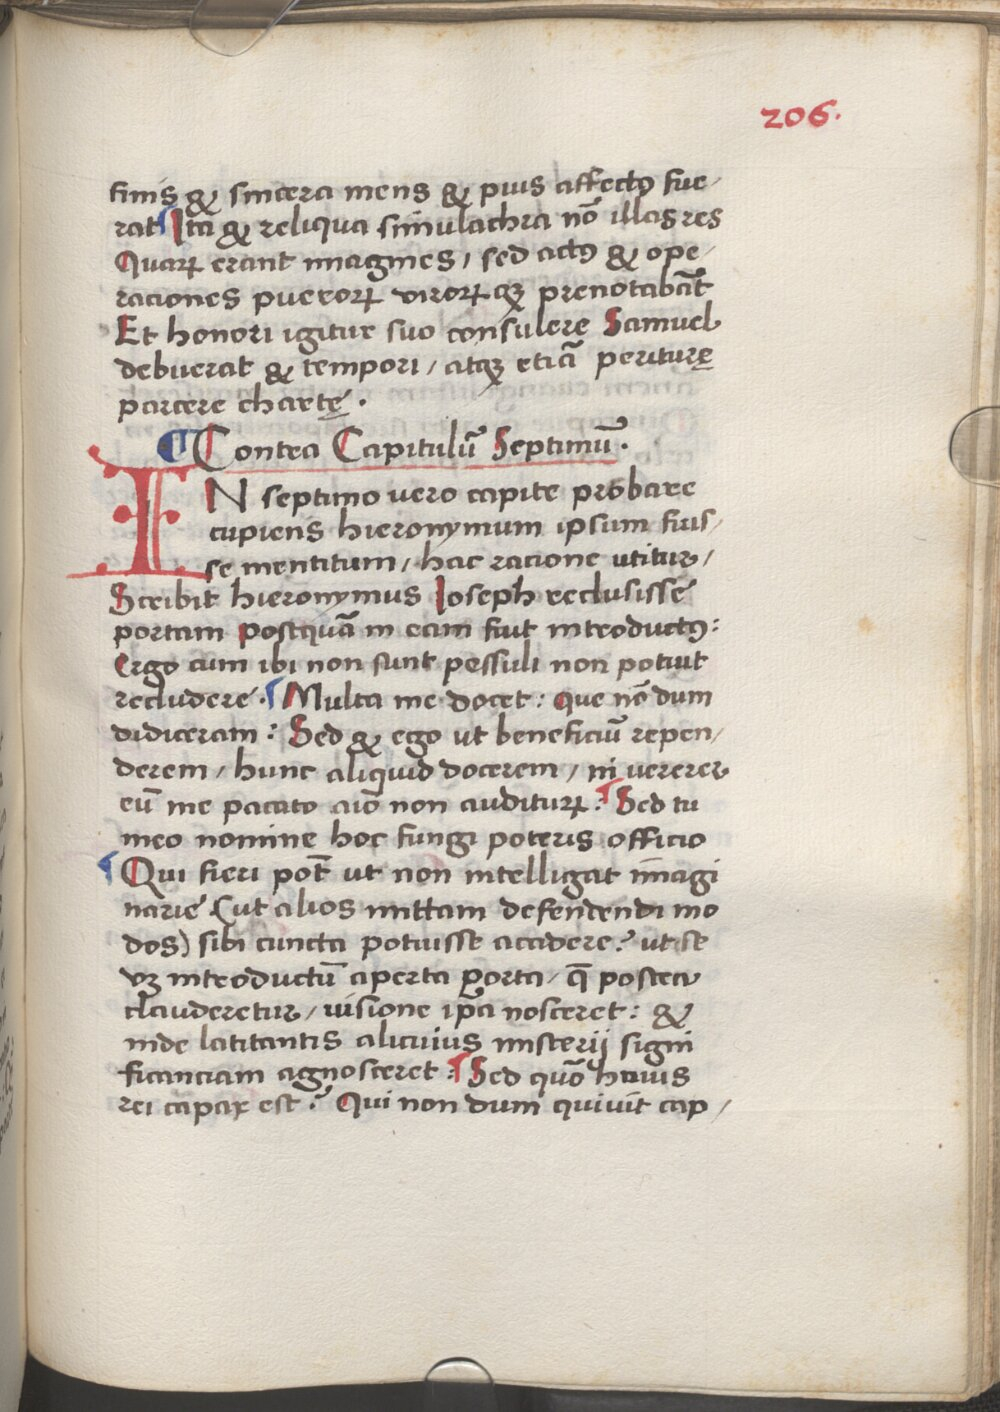 206.
finis & sincera mens & pius affectꝯ fue/
rat Ita & reliqua simulachra nō illas res
Quaꝝ erant imagines, sed actꝯ & ope/
raciones pueroꝝ viroꝝqꝫ prenotabāt
Et honori igitur suo consulere Samuel
debuerat & tempori / atqꝫ etiā periturę
parcere chartę .
¶ Contra Capitulū Septimū.
IN septimo vero capite probare
cupiens hieronymum ipsum fuis/
se mentitum / hac racione utitur /
Scribit hieronymus Ioseph reclusisse
portam postquā in eam fuit introductꝯ:
Ergo cum ibi non sunt pessuli non potuit
recludere . Multa me docet : Que nō dum
didiceram : Sed & ego ut beneficiū repen/
derem / hunc aliquid docerem / ni vererer
eū me pacato aīo non audituꝝ : Sed tu
meo nomine hoc fungi poteris officio
Qui fieri pot̄ ut non intelligat īmagi
narie (ut alios mittam defendendi mo
dos) sibi cuncta potuisse accidere ? ut se
vꝫ introductū aperta porta / q̄ postea
clauderetur / uisione ip̄a nosceret : &
inde latitantis alicuius misterij signi
ficanciam agnosceret : Sed quō huius
rei capax est ? Qui non dum quiuit cap /